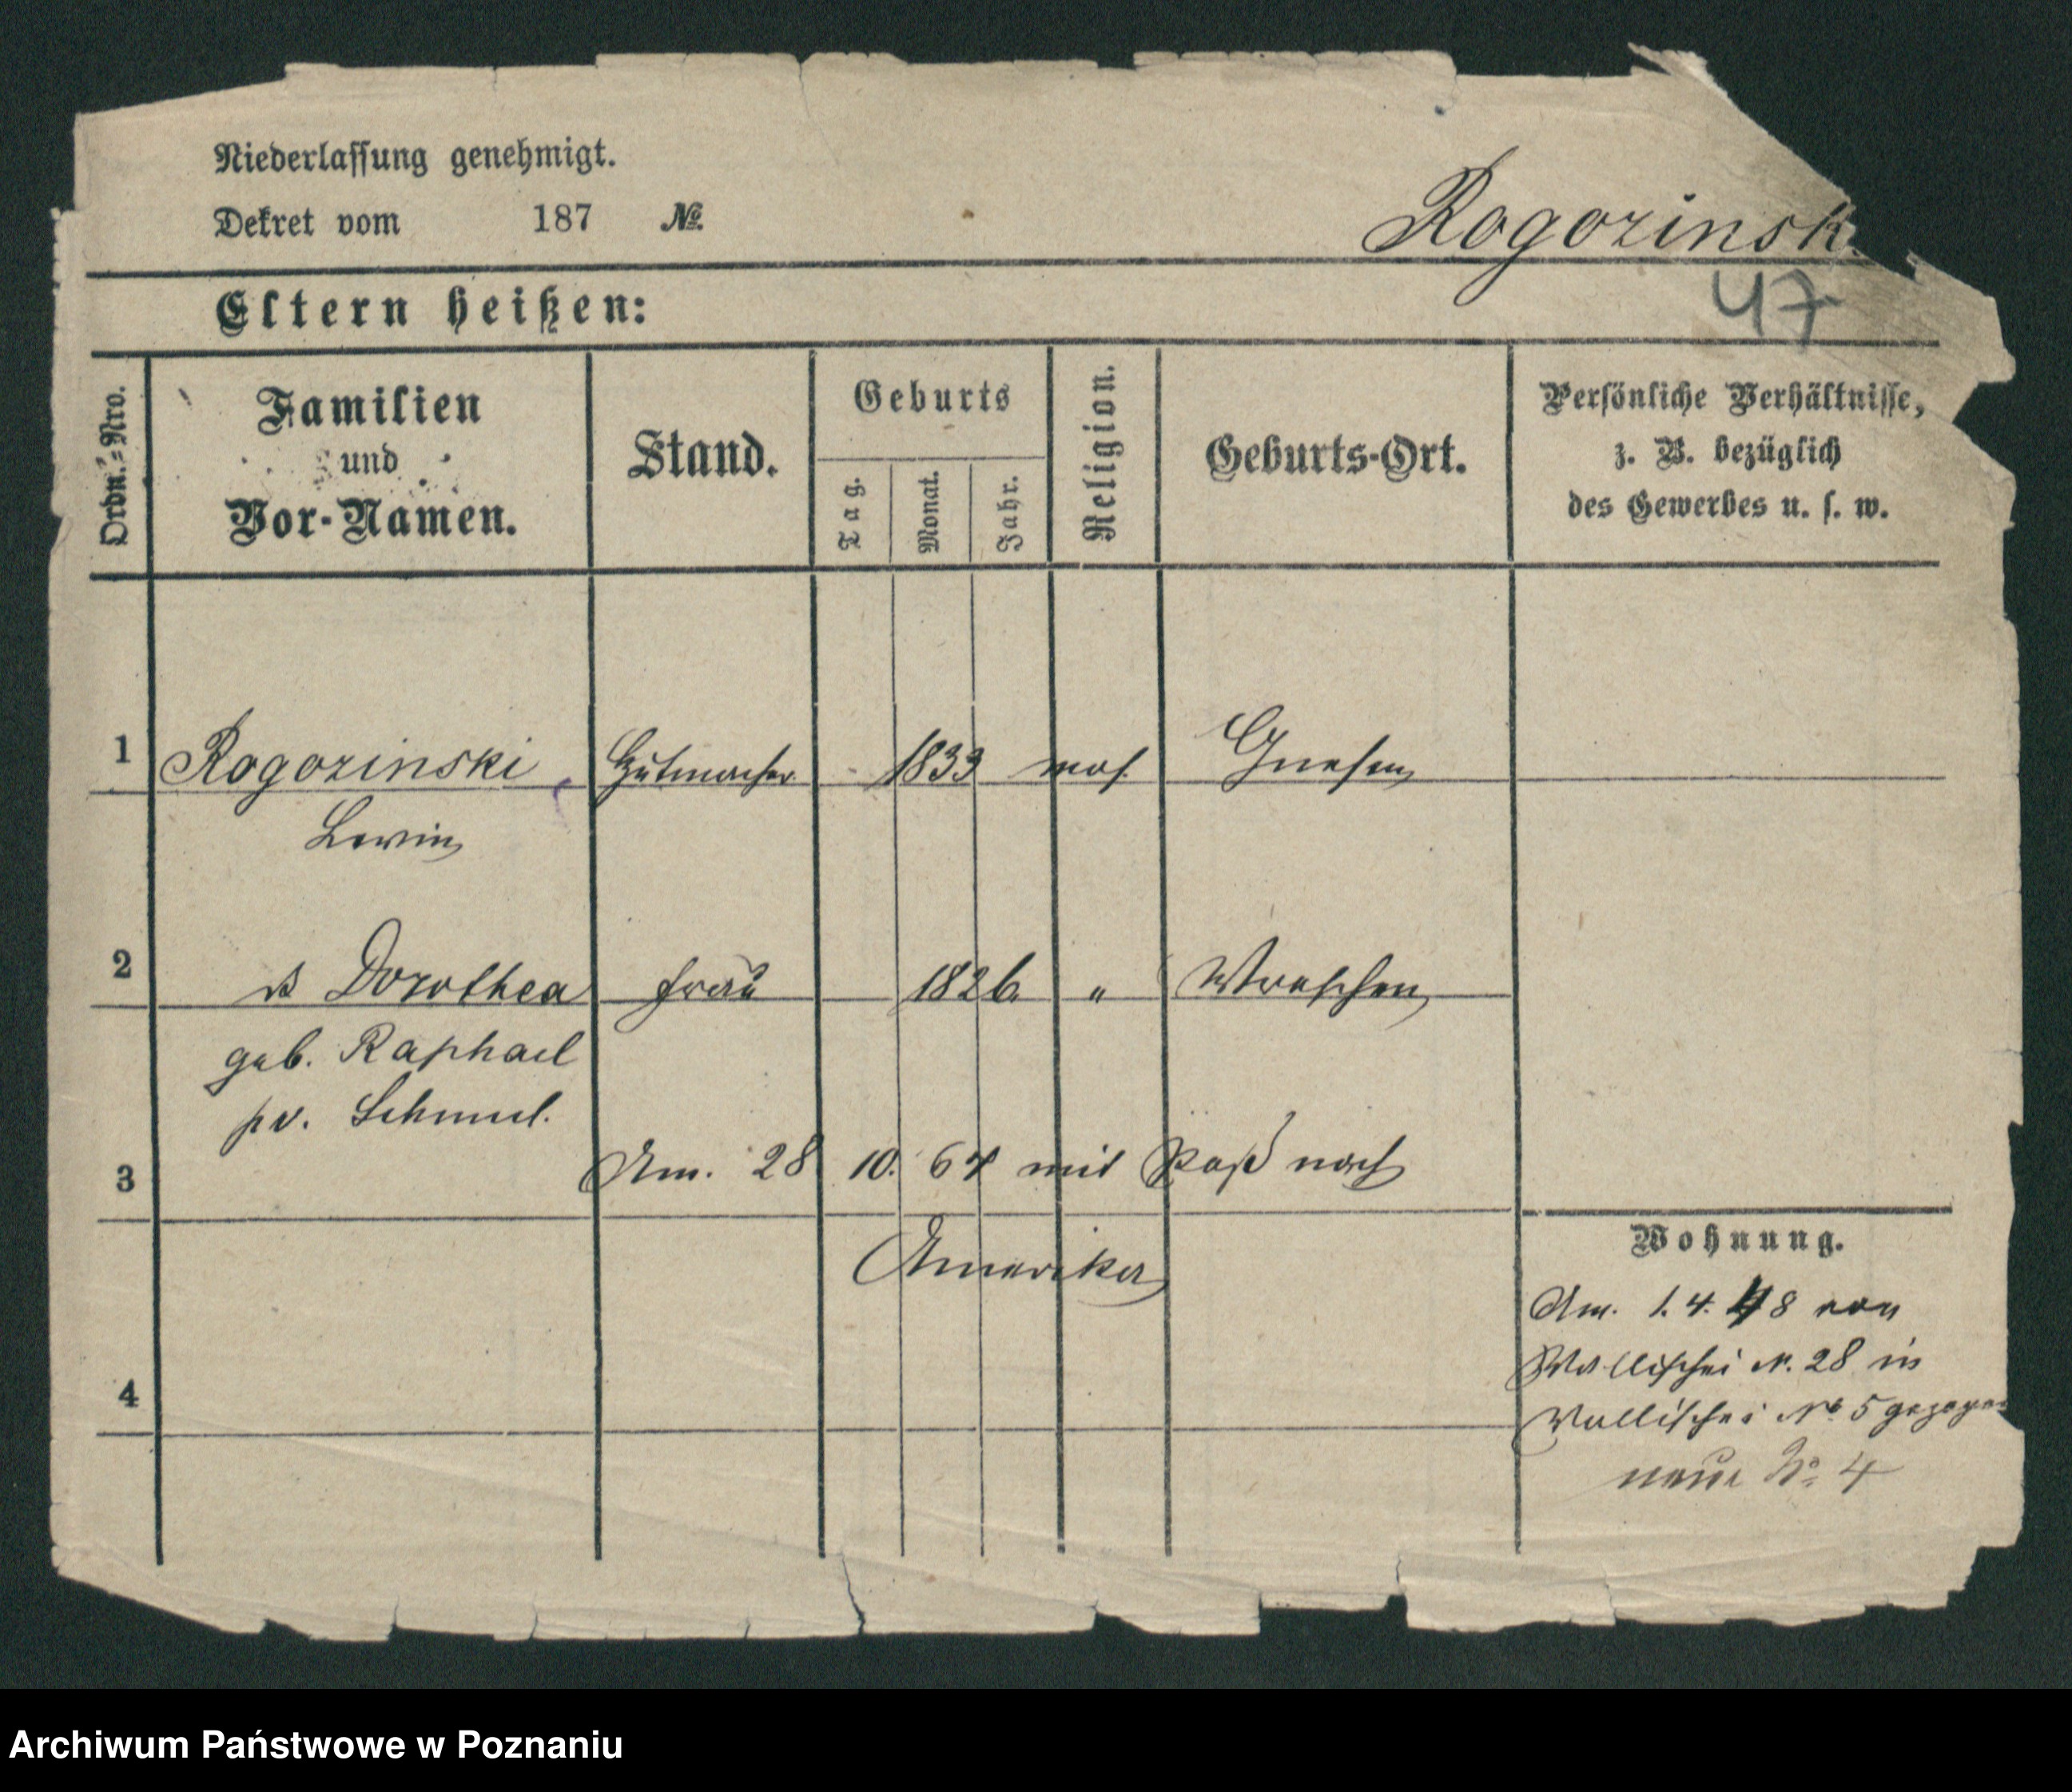 Niederlassung genehmigt.
Dekret vom 187 №.
Rogozinsk
47
Eltern heißen:
Ordn.-Nro.
Familien
und
Vor-Namen.
Stand.
Geburts
Tag.
Monat.
Jahr.
Religion.
Geburts-Ort.
Persönliche Verhältnisse,
z. B. bezüglich
des Gewerbes u. s. w.
1 Rogozinski Hutmacher 1833 mos. Gnesen
Lewin
2 Dorothea Frau 1826. " Wreschen
geb. Raphael
pv. Schmul.
3 Am. 28 10. 64 mit Paß nach
Amerika
Wohnung.
Am. 1. 4. 8 von
Wallischei N. 28 in
4 Wallischei No 5 gezogen
neue No 4
Archiwum Państwowe w Poznaniu